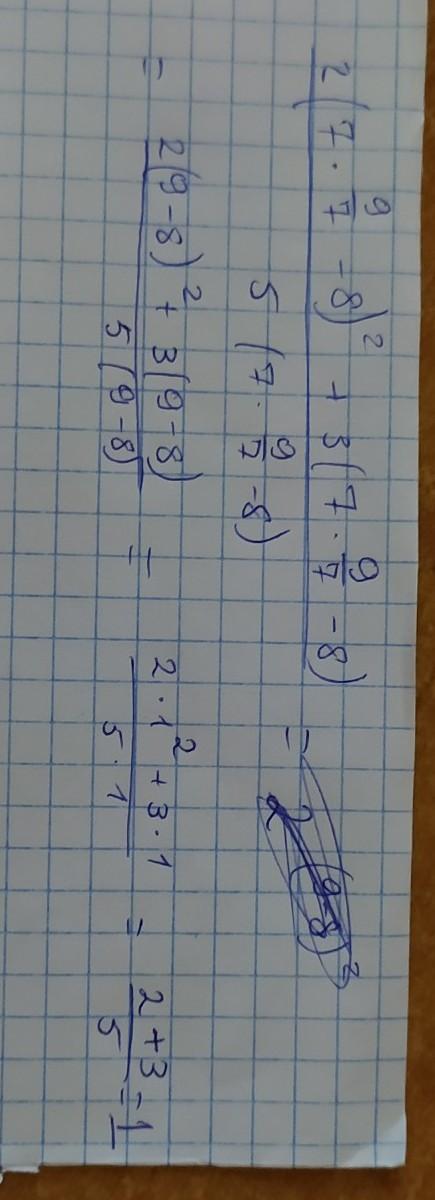 2(7 · 9/7 - 8)² + 3(7 · 9/7 - 8)
5(7 · 9/7 - 8)
=
= 2(9-8)² + 3(9-8) / 5(9-8) = 2·1² + 3·1 / 5·1 = 2+3 / 5 = 1